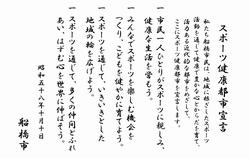 スポーツ健康都市宣言
私たち船橋市民は、地域に根ざしたスポーツ
活動を通して健康な心とからだを養い、
活力ある近代的な都市をめざして、
ここにスポーツ健康都市を宣言します。
一 市民一人ひとりがスポーツに親しみ、
健康な生活を営もう。
一 みんなでスポーツを楽しむ機会を
つくり、こどもを健やかに育てよう。
一 スポーツを通して、いきいきとした
地域の輪を広げよう。
一 スポーツを通して、多くの仲間とふれ
あい、はずむ心を世界に伸ばそう。
昭和五十八年十月十日
船橋市